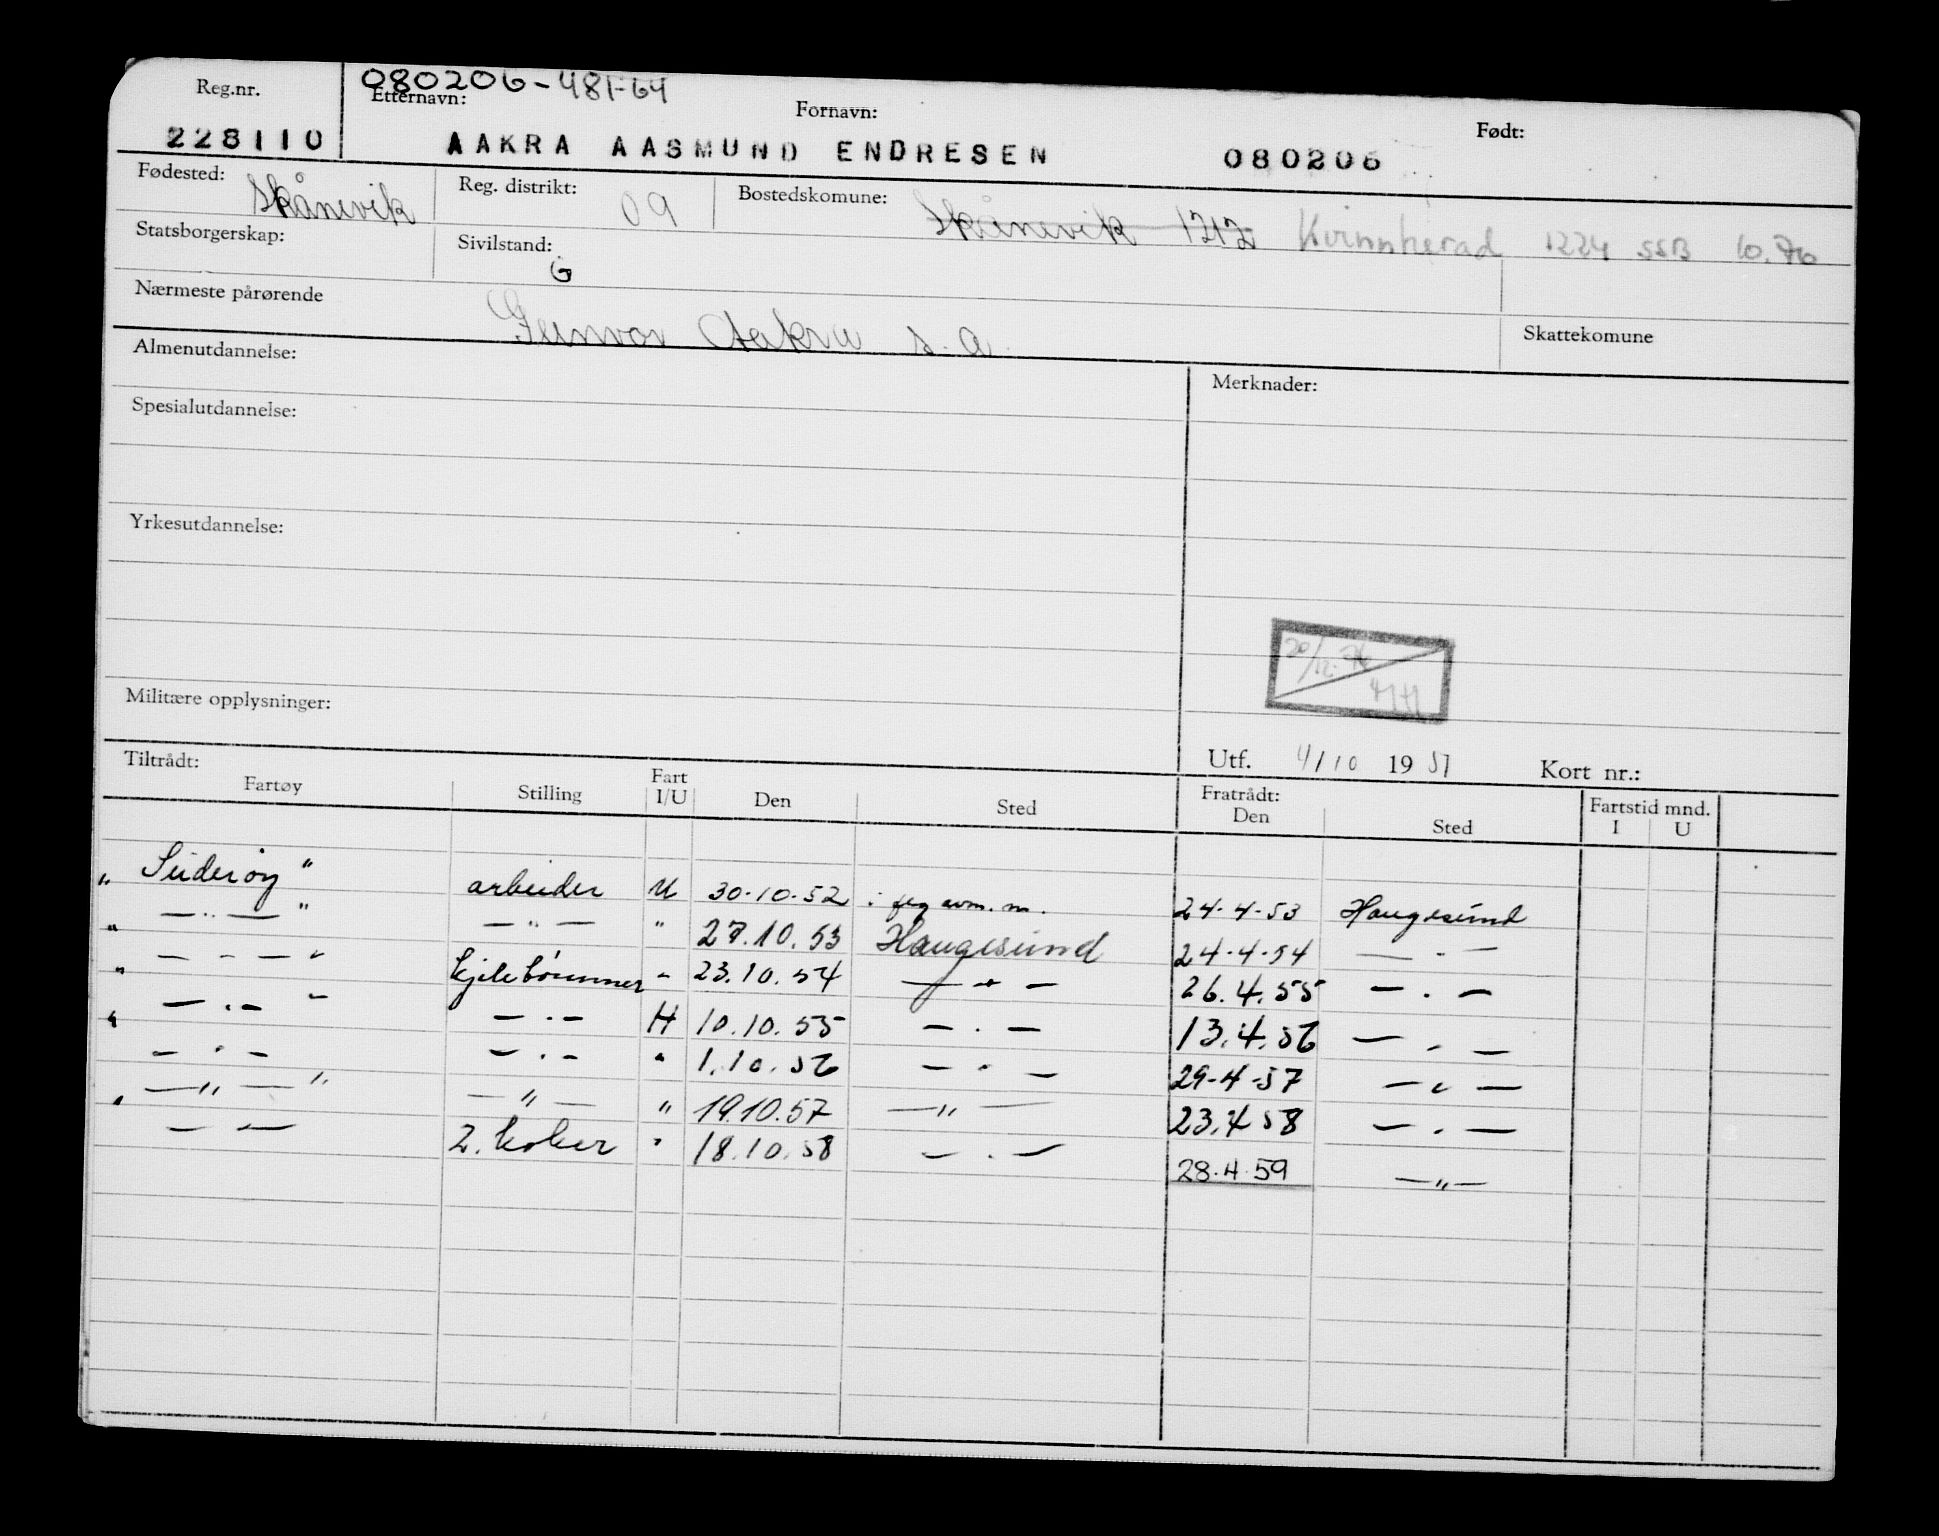 080206-481-64
Reg.nr. Etternavn: Fornavn: Født:
228110 AAKRA AASMUND ENDRESEN 080206
Fødested: Skånevik Reg. distrikt: 09 Bostedskomune: Skånevik 1212 Kvinnherad 1224 SSB 10.76
Statsborgerskap: Sivilstand: G
Nærmeste pårørende Gunvor Aakra s.a. Skattekomune
Almenutdannelse: Merknader:
Spesialutdannelse:
Yrkesutdannelse:
20/12.76
Militære opplysninger:
Utf. 4/10 1951 Kort nr.:
Tiltrådt: Fratrådt: Fartstid mnd.
Fartøy Stilling Fart I/U Den Sted Den Sted I U
" Suderøy " arbeider U 30.10.52 24.4.53 Haugesund
— " — " — " — " 27.10.53 Haugesund 24.4.54 — " —
" — " — " kjelebømmer " 23.10.54 — " — 26.4.55 — " —
" — " — " — " — H 10.10.55 — " — 13.4.56 — " —
" — " — — " — " 1.10.56 — " — 29-4-57 — " —
— " — " — " — " 19.10.57 — " — 23.4.58 — " —
" — " — 2. koker " 18.10.58 — " — 28.4.59 — " —